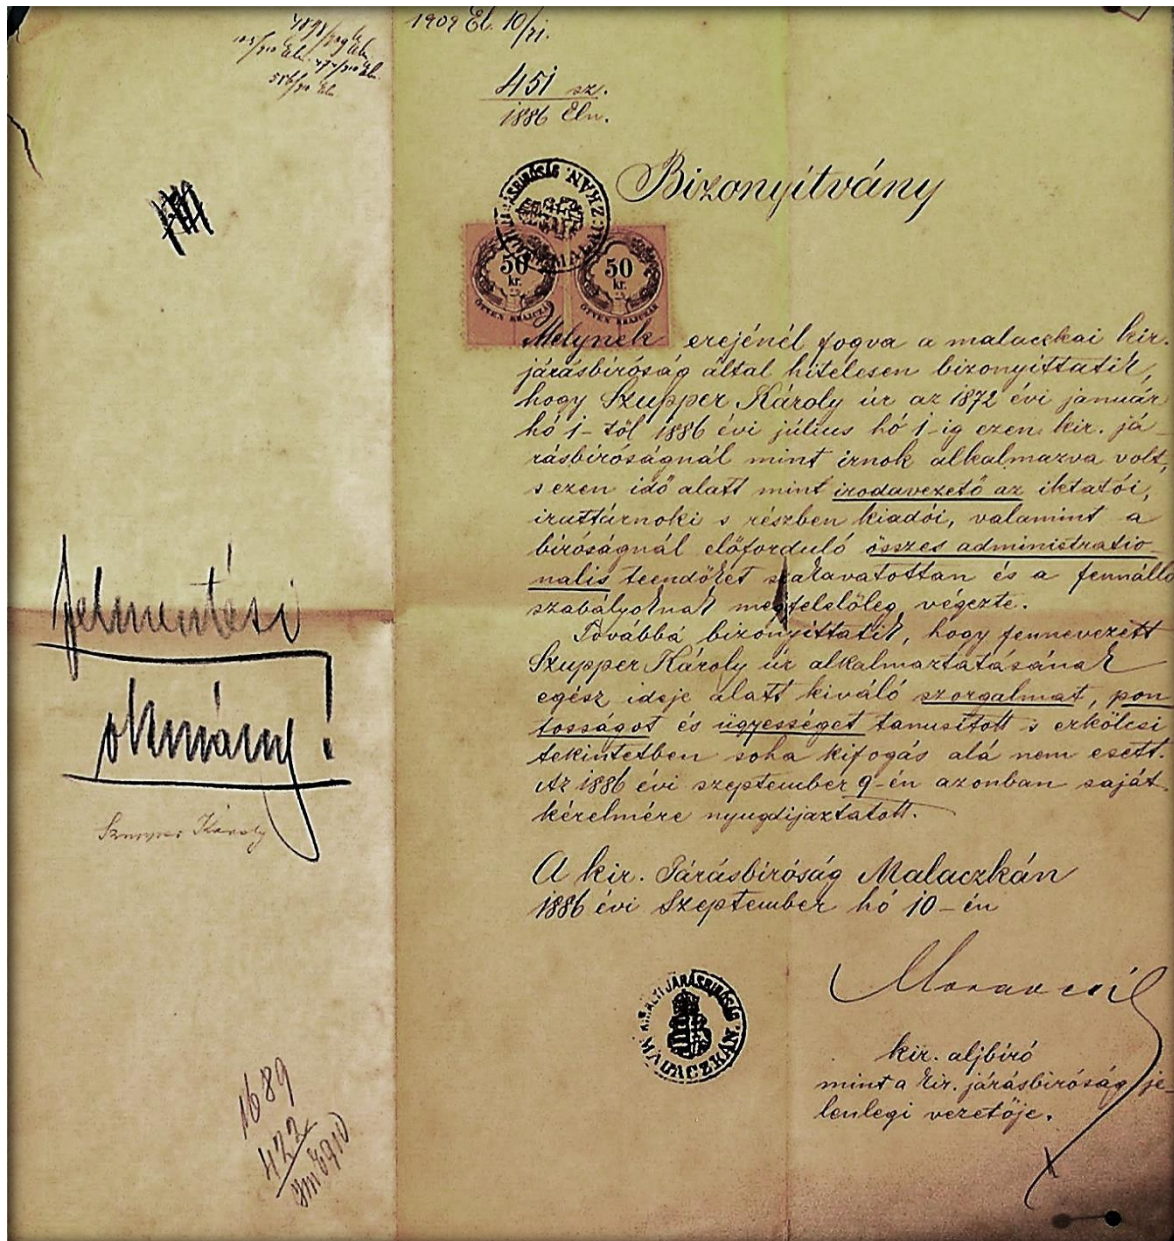 1909 El. 10/11.
451 sz.
1886 Eln.
Bizonyítvány
50 kr. ÖTVEN KRAJCZÁR
50 kr. ÖTVEN KRAJCZÁR
Melynek erejénél fogva a malaczkai kir.
járásbíróság által hitelesen bizonyíttatik,
hogy Szupper Károly úr az 1872 évi január
hó 1-től 1886 évi július hó 1-ig ezen kir. já-
rásbíróságnál mint irnok alkalmazva volt,
s ezen idő alatt mint irodavezető az iktatói,
irattárnoki s részben kiadói, valamint a
bíróságnál előforduló összes administratio-
nalis teendőket szakavatottan és a fennálló
szabályoknak megfelelőleg végezte.
Továbbá bizonyíttatik, hogy fennevezett
Szupper Károly úr alkalmaztatásának
egész ideje alatt kiváló szorgalmat, pon
tosságot és ügyességet tanusított s erkölcsi
tekintetben soha kifogás alá nem esett.
Az 1886 évi szeptember 9-én azonban saját
kérelmére nyugdíjaztatott.
A kir. Járásbíróság Malaczkán
1886 évi Szeptember hó 10-én
Moravcsik
kir. aljbíró
mint a kir. járásbíróság je-
lenlegi vezetője.
KIRÁLYI JÁRÁSBIRÓSÁG MALACZKÁN
felmentési
okmány!
Szupper Károly
1689
422